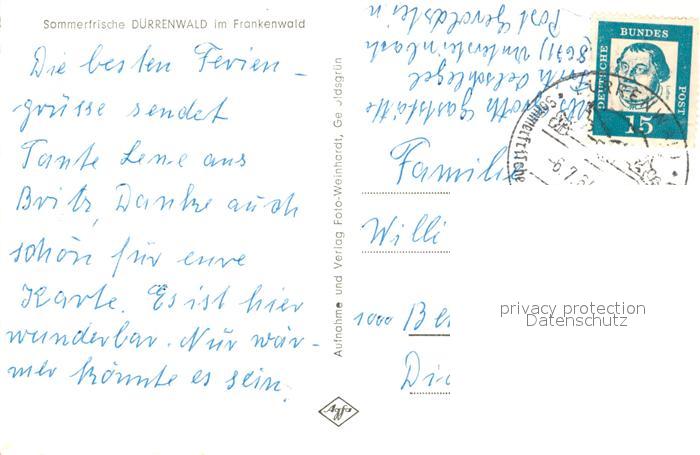 Sommerfrische DÜRRENWALD im Frankenwald
Die besten Ferien-
grüsse sendet
Tante Lene aus
Britz, Danke auch
schön für eure
Karte. Es ist hier
wunderbar. Nur wär-
mer könnte es sein.
Aufnahme und Verlag Foto-Weinhardt, Ge oldsgrün
Agfa
Gaststätte
Oelschlegel
(8671) Untersteinbach
Post Geroldsgrün
DEUTSCHE BUNDES POST
15
Sommerfrische
-6.7.
Familie
Willi
1000 Be
Die
privacy protection
Datenschutz